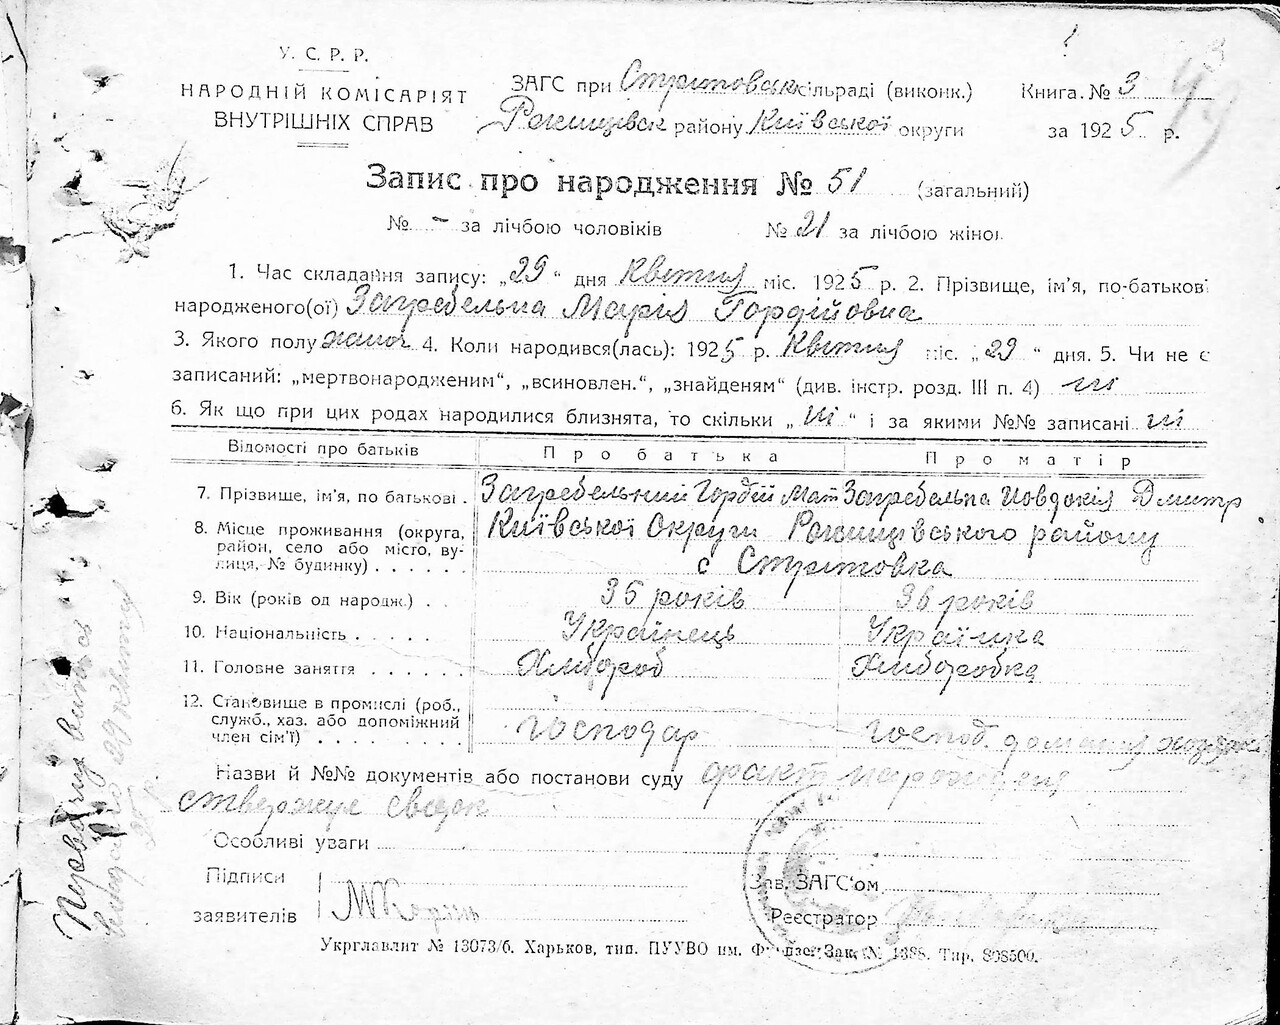 У. С. Р. Р.
НАРОДНІЙ КОМІСАРІЯТ
ВНУТРІШНІХ СПРАВ
ЗАГС при Стритовськ сільраді (виконк.)
району Київської округи
Книга № 3
за 1925 р.
Запис про народження № 51 (загальний)
№ - за лічбою чоловіків № 21 за лічбою жіно
1. Час складання запису: „29“ дня Квітня міс. 1925 р. 2. Прізвище, ім'я, по-батькові
народженого(ої) Загребельна Марія Гордійовна
3. Якого полу жіноч 4. Коли народився(лась): 1925 р. Квітня міс. „29“ дня. 5. Чи не є
записаний: „мертвонародженим“, „всиновлен.“, „знайденям“ (див. інстр. розд. III п. 4) ні
6. Як що при цих родах народилися близнята, то скільки „ні“ і за якими №№ записані ні
Відомості про батьків Про батька Про матір
7. Прізвище, ім'я, по батькові. Загребельний Гордій Мат Загребельна Йовдокія Дмитр
8. Місце проживання (округа, район, село або місто, вулиця, № будинку) Київської Округи району
с Стритовка
9. Вік (років од народж.) 35 років 36 років
10. Національність Українець Українка
11. Головне заняття Хлібороб Хліборобка
12. Становище в промислі (роб., служб., хаз. або допоміжний член сім'ї) господар господ.
Назви й №№ документів або постанови суду факт народженя
Особливі уваги
Підписи
заявителів
Зав. ЗАГС'ом
Реєстратор
Укрглавлит № 13073/б. Харьков, тип. ПУУВО им. Фрунзе. Зак. № 1388. Тир. 808500.